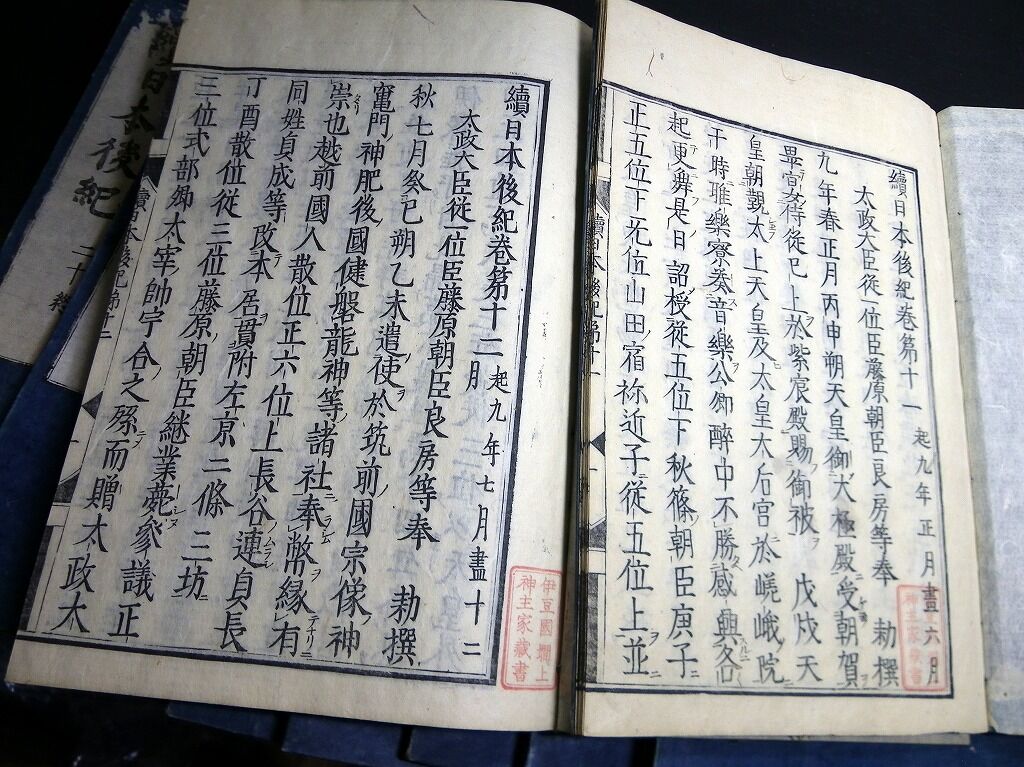 續日本後紀卷第十一 起九年正月盡六月
太政大臣從一位臣藤原朝臣良房等奉 勅撰
九年春正月丙申朔天皇御大極殿受朝賀
畢宮女侍從已上於紫宸殿賜御被 戊戌天
皇朝覲太上天皇及太皇太后宮於嵯峨院
于時雅樂寮奏音樂公卿醉中不勝感興各
起更舞是日 詔授從五位下秋篠朝臣庚子
正五位下无位山田宿祢近子從五位上並
續日本後紀卷第十二 起九年七月盡十二月
太政大臣從一位臣藤原朝臣良房等奉 勅撰
秋七月癸巳朔乙未遣使於筑前國宗像神
竈門神肥後國健磐龍神等諸社奉幣緣有
崇也越前國人散位正六位上長谷連貞長
同姓貞成等改本居貫附左京二條二坊
丁酉散位從三位藤原朝臣継業薨參議正
三位式部卿太宰帥宇合之孫而贈太政大
伊豆國
上
神主家藏書
神主家藏書
續日本後紀
二十